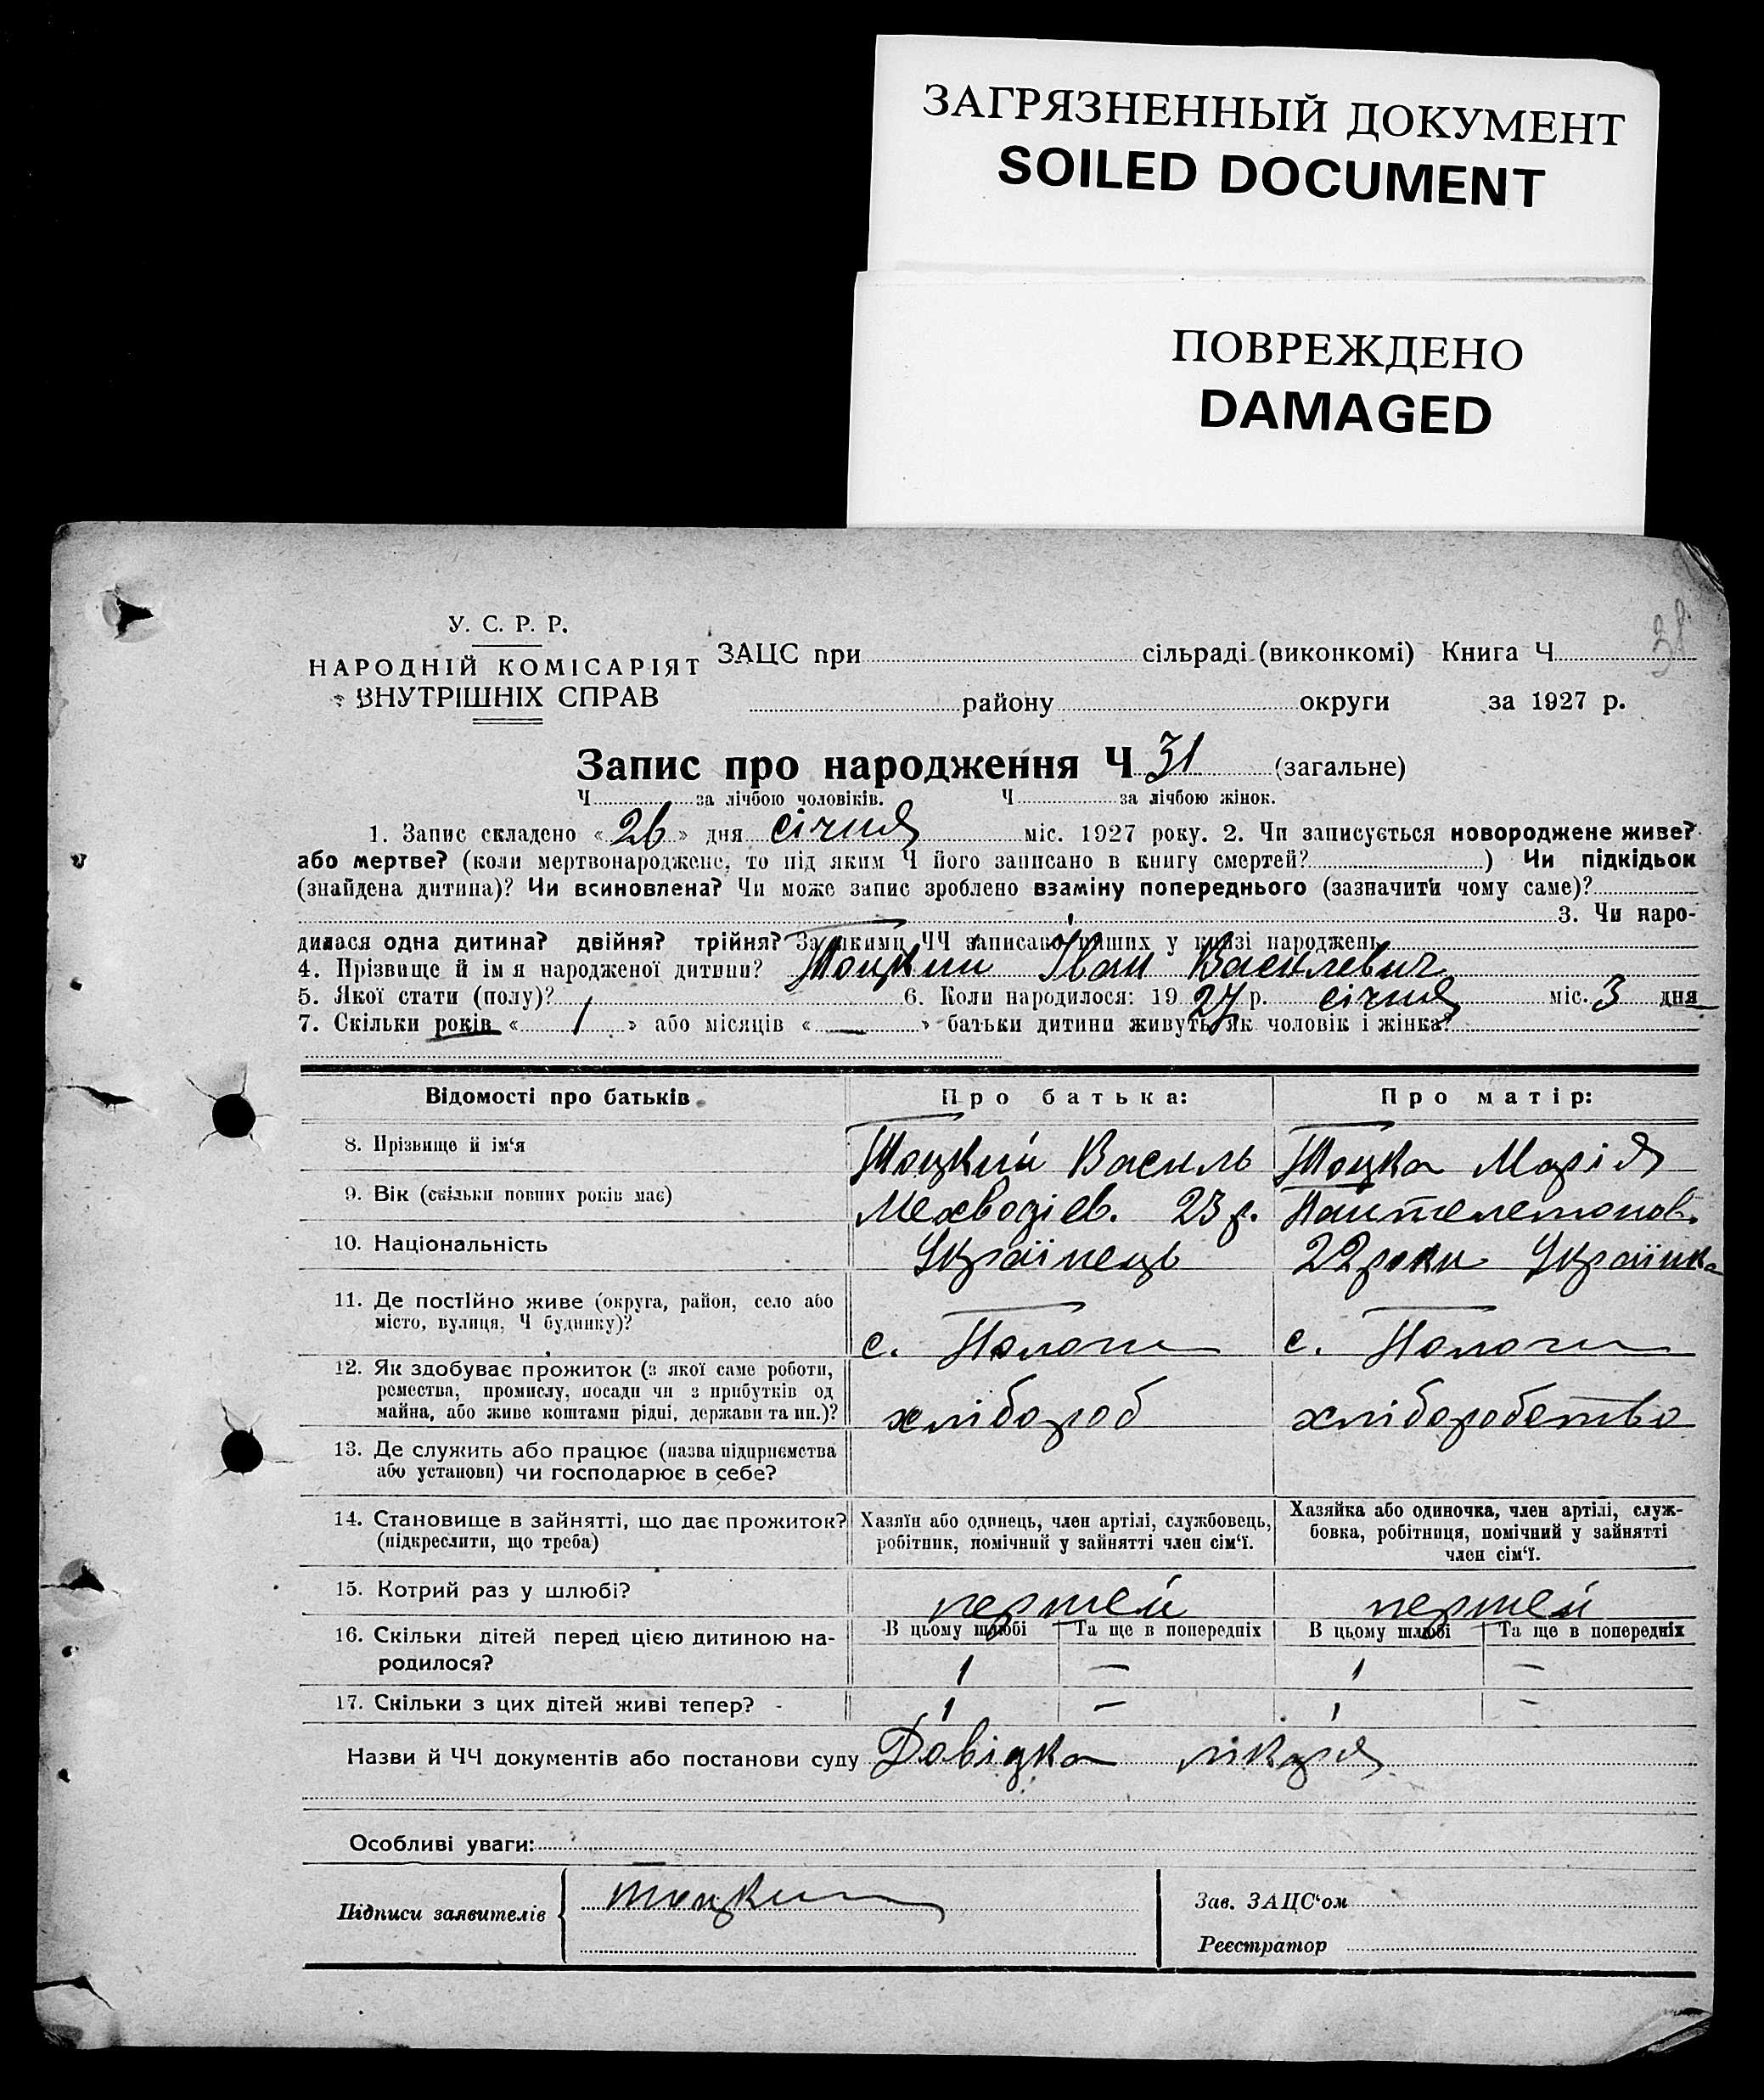 ЗАГРЯЗНЕННЫЙ ДОКУМЕНТ
SOILED DOCUMENT
ПОВРЕЖДЕНО
DAMAGED
38.
У. С. Р. Р.
НАРОДНІЙ КОМІСАРІЯТ
ВНУТРІШНІХ СПРАВ
ЗАЦС при сільраді (виконкомі) Книга Ч
району округи за 1927 р.
Запис про народження Ч 31 (загальне)
Ч за лічбою чоловіків. Ч за лічбою жінок.
1. Запис складено «26» дня січня міс. 1927 року. 2. Чи записується новороджене живе?
або мертве? (коли мертвонароджене, то під яким Ч його записано в книгу смертей? ) Чи підкідьок
(знайдена дитина)? Чи всиновлена? Чи може запис зроблено взаміну попереднього (зазначити чому саме)?
3. Чи наро-
дилася одна дитина? двійня? трійня? За якими ЧЧ записано інших у книзі народжень
4. Прізвище й імя народженої дитини? Тоцкий Іван Василевич
5. Якої стати (полу)? 6. Коли народилося: 1927 р. січня міс. 3 дня
7. Скільки років « 1 » або місяців « — » батьки дитини живуть як чоловік і жінка?
Відомості про батьків Про батька: Про матір:
8. Прізвище й ім‘я Тоцкий Василь Тоцка Марія
9. Вік (скільки повних років має) Мехводіев. 23 р. Пантелемонов.
10. Національність Українець 22 роки Українка
11. Де постійно живе (округа, район, село або
місто, вулиця, Ч будинку)? с. Пологи с. Пологи
12. Як здобуває прожиток (з якої саме роботи,
ремества, промислу, посади чи з прибутків од
майна, або живе коштами рідні, держави та ин.)? хлібороб хліборобство
13. Де служить або працює (назва підприємства
або установи) чи господарює в себе?
14. Становище в зайнятті, що дає прожиток? Хазяїн або одинець, член артілі, службовець, Хазяйка або одиночка, член артілі, служ-
(підкреслити, що треба) робітник, помічний у зайнятті член сім‘ї. бовка, робітниця, помічний у зайнятті
член сім‘ї.
15. Котрий раз у шлюбі? першей першей
16. Скільки дітей перед цією дитиною на- В цьому шлюбі Та ще в попередніх В цьому шлюбі Та ще в попередніх
родилося? 1 — 1 —
17. Скільки з цих дітей живі тепер? 1 — 1 —
Назви й ЧЧ документів або постанови суду Довідка лікаря
Особливі уваги:
Підписи заявителів Тоцкий
Зав. ЗАЦС‘ом
Реєстратор